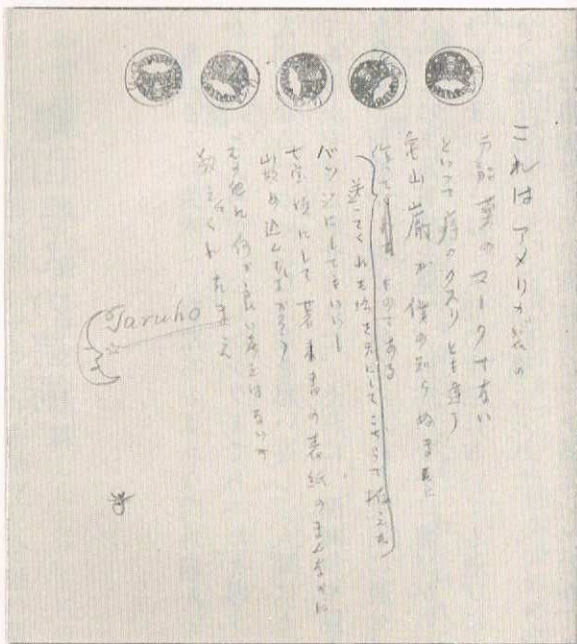 これはアメリカ製の
売薬のマークでない
といって痔のクスリとも違う
亀山巌が僕の知らぬまに
作って ものである
送ってくれた を元にしてこちらで拵えた
バッジにしてもいいし
七宝焼にして 書の表紙のまんなかに
嵌め込んでもよかろう
その他に何か良い考えはないか
教えてくれたまえ
Taruho